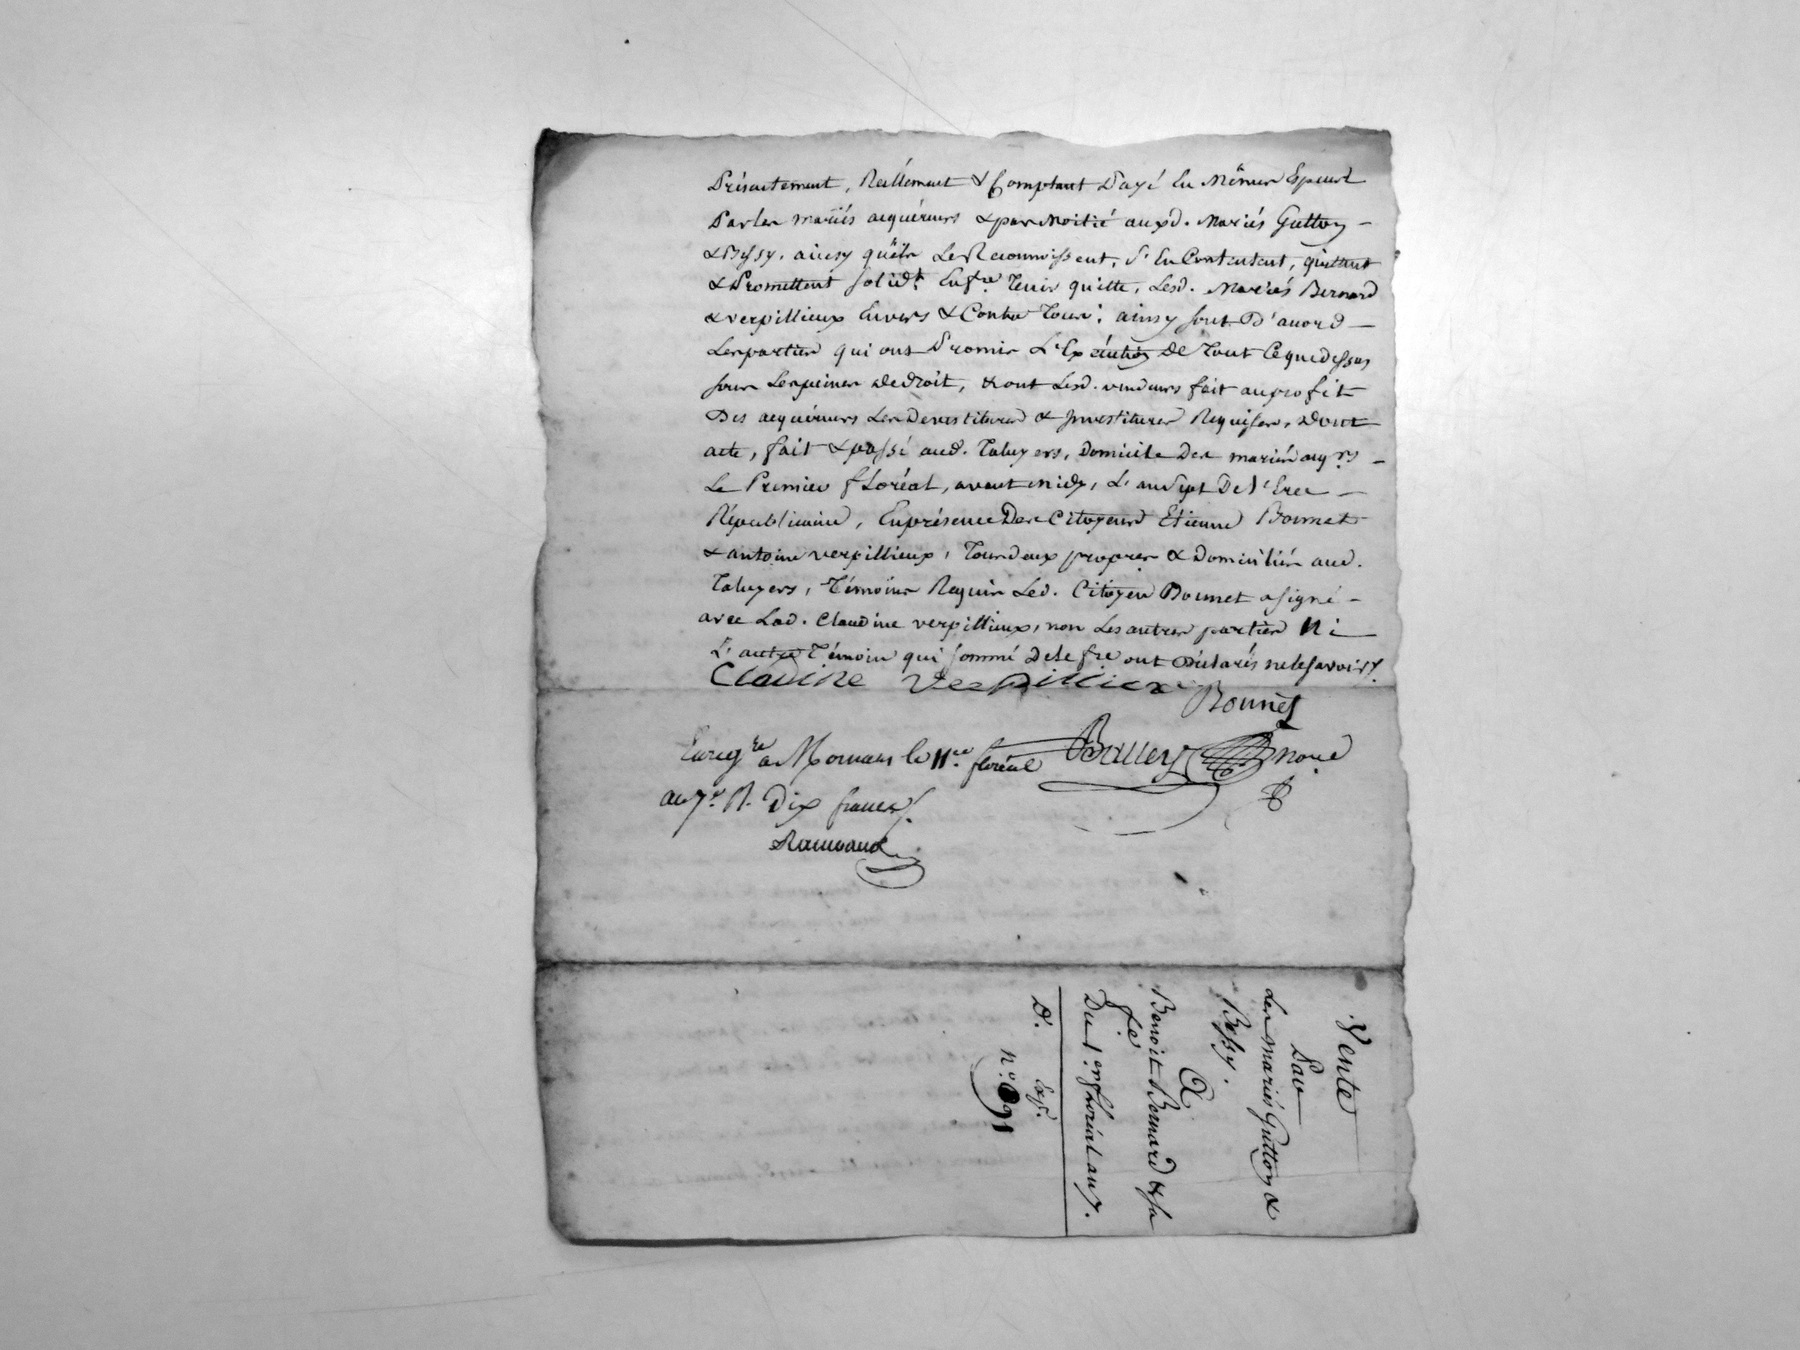 Présentement, Reéllement & Comptant Payé En Mêmes Especes
Par les mariés acquéreurs & par Moitié auxd. Mariés Gutton
& Bessy, ainsy qu'ils Le Reconnoissent, S'En Contentent, quittent
& Promettent solidt. Enfre. Tenir quitte, Lesd. Mariés Bernard
& verpillieux Envers & Contre Tous; ainsy sont D'accord
Les parties qui ont Promis L'Exécution De Tout Ce que dessus
sous Les peines de droit, & ont Lesd. vendeurs fait au profit
Des acquéreurs Les Devestitures & Investitures Requises, Dont
acte, fait & passé aud. Taluyers, Domicile Des mariés acqrs
Le Premier floréal, avant midy, L'an Sept De l'Ere
Républicaine, En présence Des Citoyens Etienne Bonnet
& antoine verpillieux, Tous deux propres & Domiciliés aud.
Taluyers, Témoins Requis Led. Citoyen Bonnet a signé
avec Lad. Claudine verpillieux, non Les autres parties Ni
L'autre Témoin qui sommé de le fre ont Déclarés ne le savoir
Claudine verpillieux
Bonnet
Enregré a Mornant le 11e. floréal
an 7e. R. Dix francs
Vente
Par
Les mariés Gutton &
Bessy.
A
Benoit Bernard & sa
fe
Du 1er floréal an 7.
D. Exp.
n°. 91